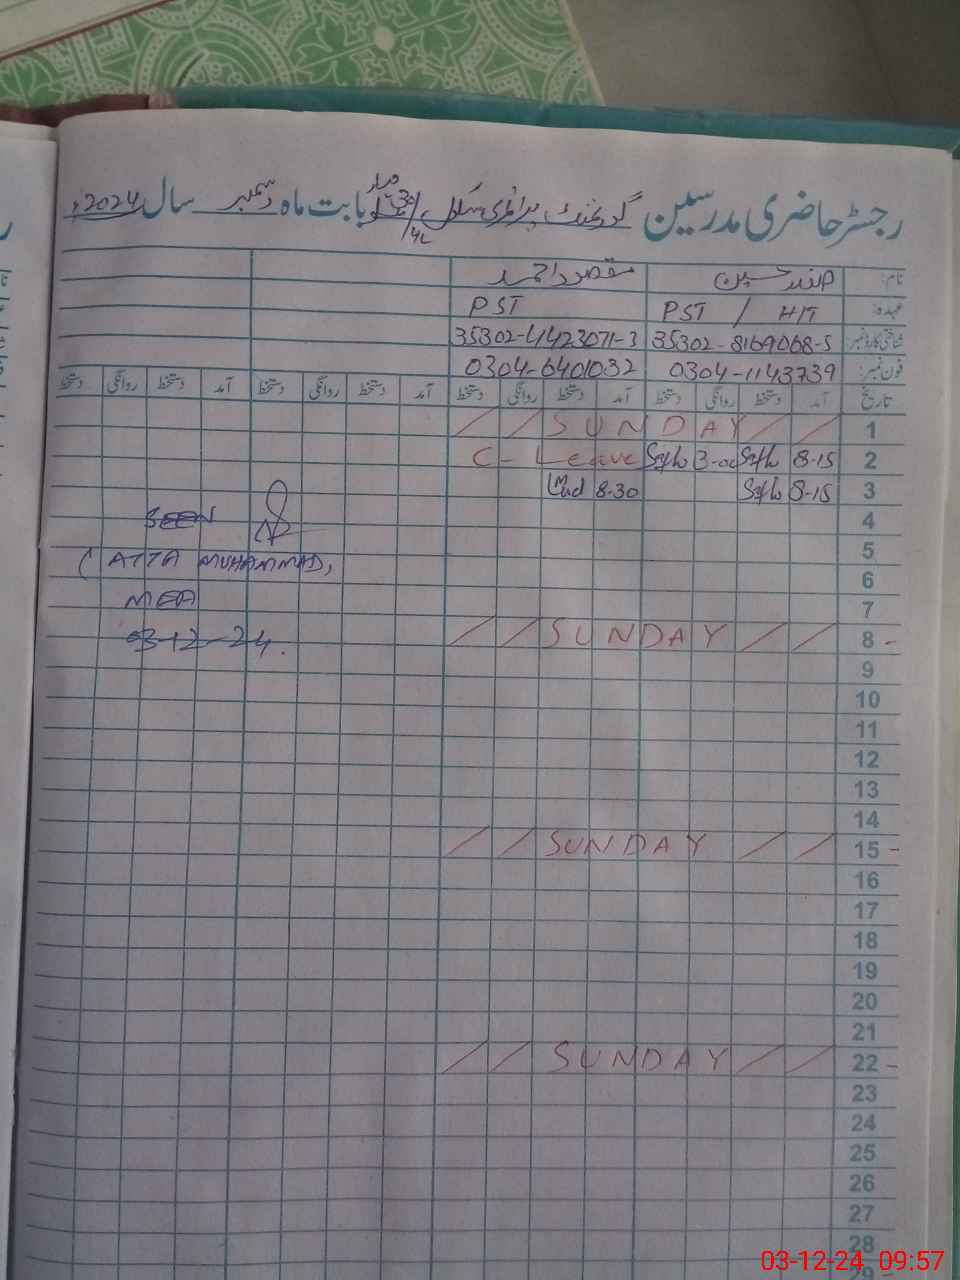 رجسٹر حاضری مدرسین گورنمنٹ پرائمری سکول بابت ماہ دسمبر سال 2024ء
نام: صفدر حسین مقصود احمد
عہدہ: PST / HT PST
شناختی کارڈ نمبر 35302-8169068-5 35302-4423071-3
فون نمبر: 0304-1143739 0304-6401032
تاریخ آمد دستخط روانگی دستخط آمد دستخط روانگی دستخط آمد دستخط روانگی دستخط آمد دستخط روانگی دستخط
1 / / SUNDAY / /
2 8-15 3-00 C-Leave
3 8-15 8-30
4
SEEN
5
(ATTA MUHAMMAD)
6
7
MEA
8 - / / SUNDAY / /
03-12-24.
9
10
11
12
13
14
15 - / / SUNDAY / /
16
17
18
19
20
21
22 - / / SUNDAY / /
23
24
25
26
27
28
29
03-12-24 09:57